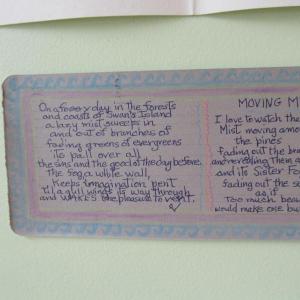 On a foggy day in the forests
and coasts of Swan's Island
a lazy mist sweeps in
and out of branches of
fading greens of evergreens
its pall over all
the sins and the good of the day before.
The fog a white wall,
Keeps imagination pent
til a gull wings its way through
and the pleasure to
MOVING M
I love to watch the
Mist moving amo
the pines
fading out the bra
and revealing them a
and its Sister Fo
fading out the se
as if
Too much beau
would make one bu